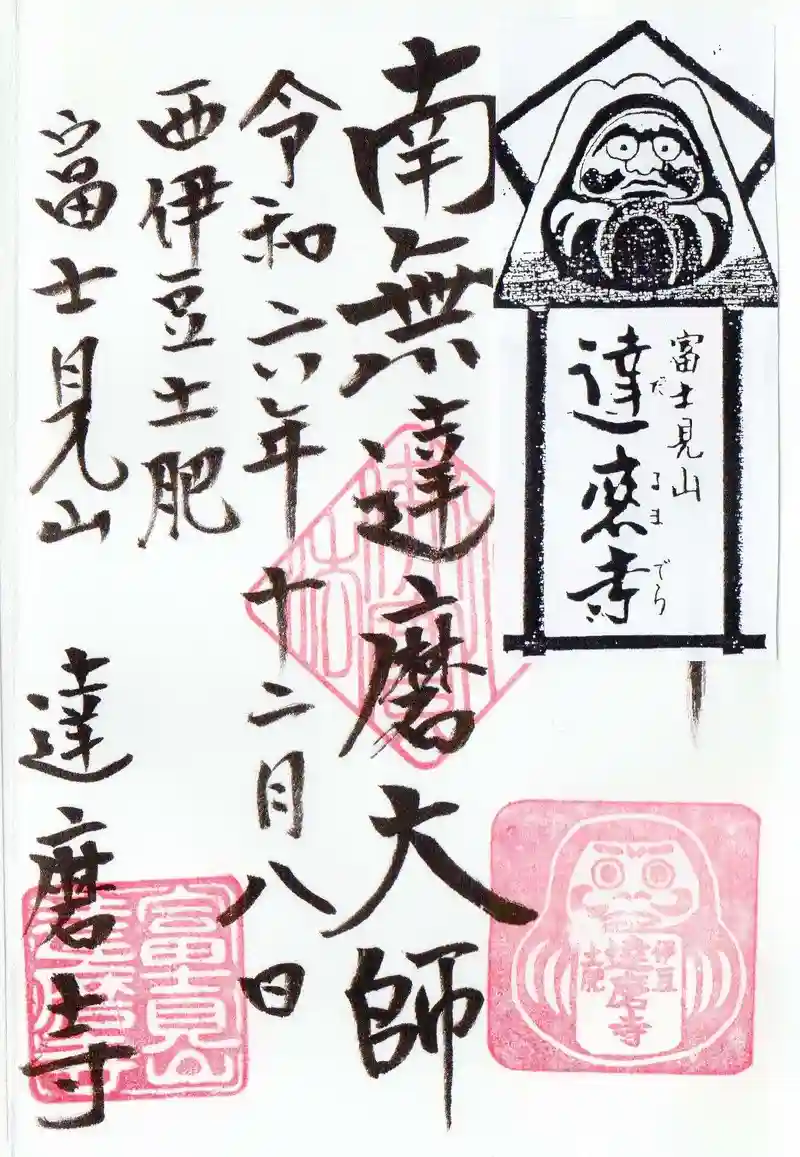 富士見山
達磨寺
だるまでら
南無達磨大師
令和六年十二月八日
西伊豆土肥
富士見山 達磨寺
伊豆
達磨寺
土肥
富士見山
達磨寺